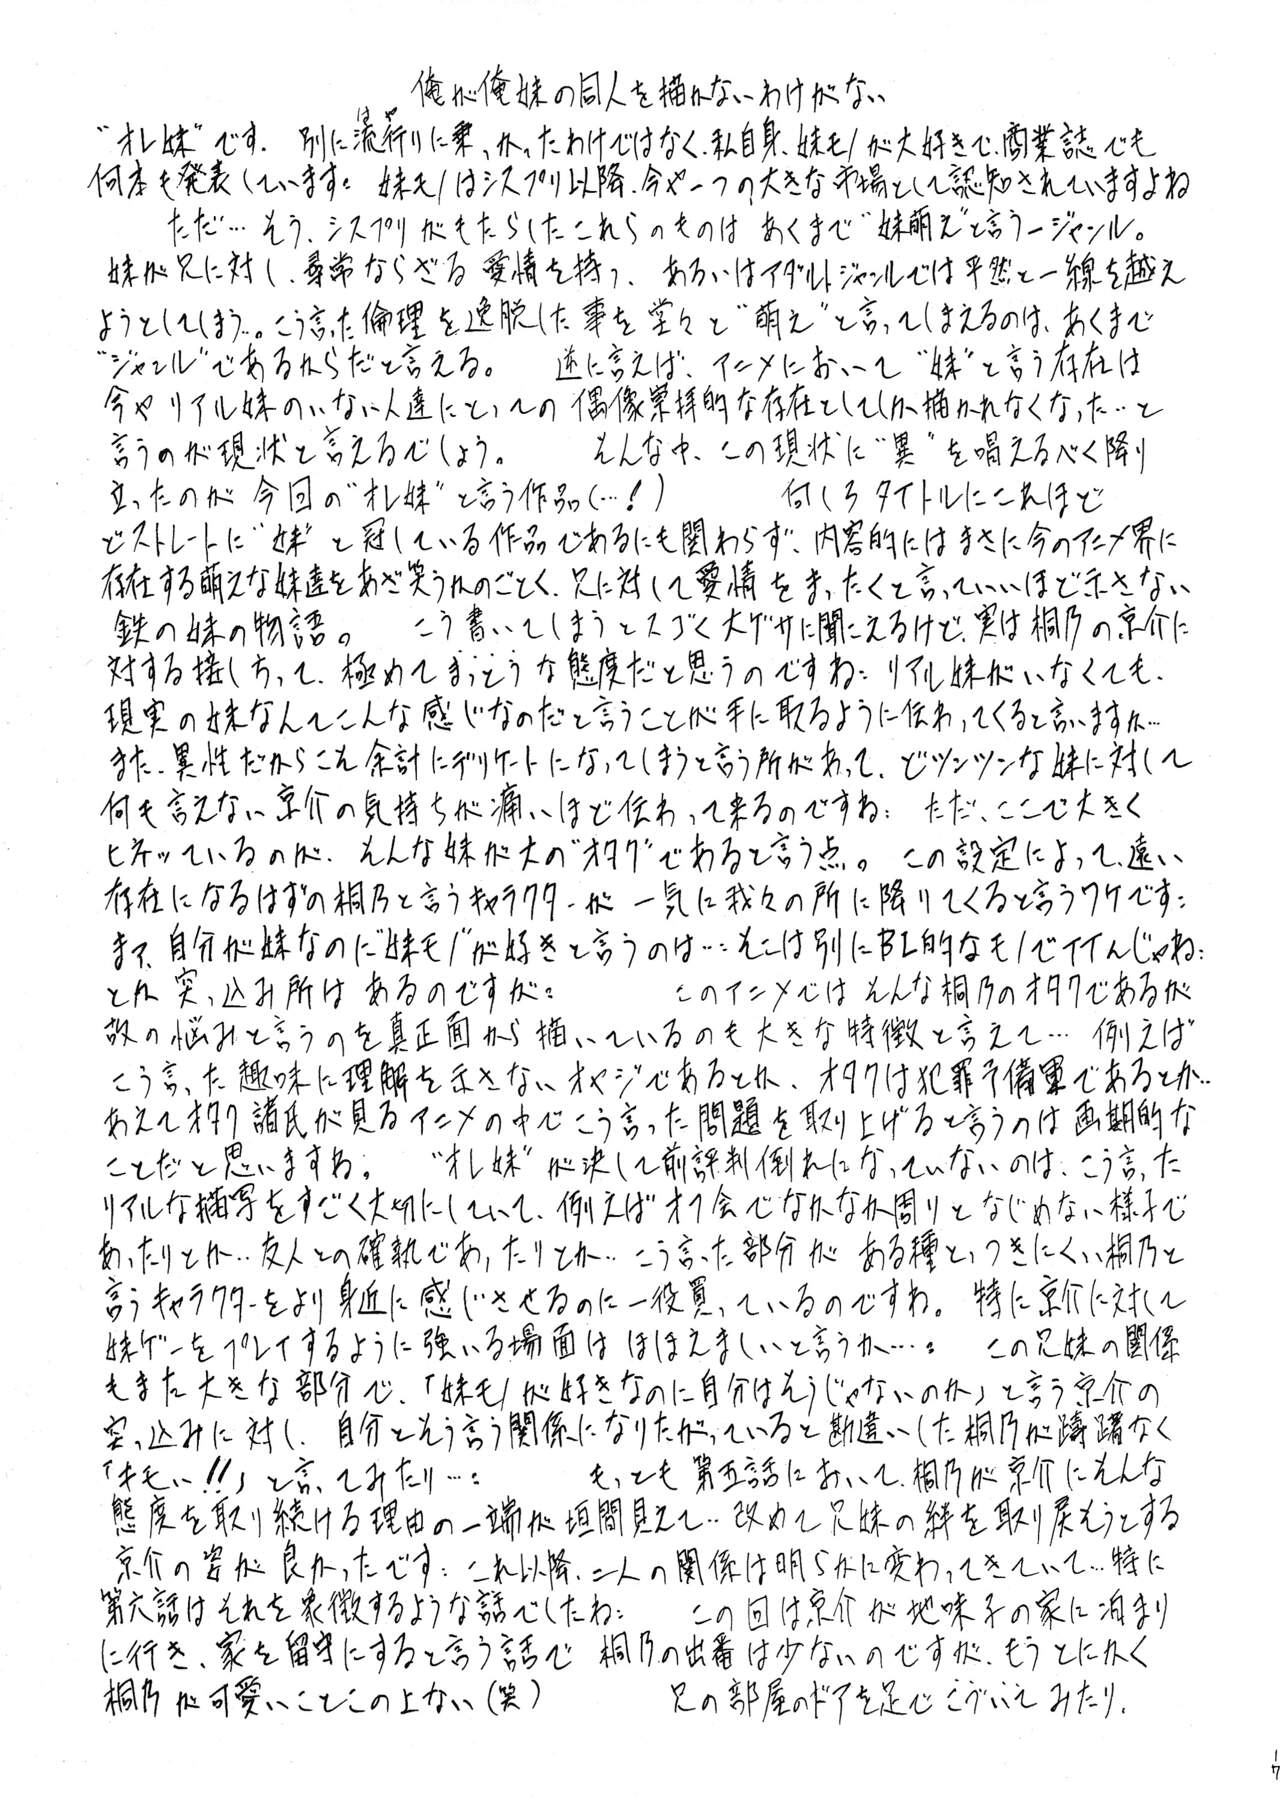 俺が俺妹の同人を描かないわけがない
"オレ妹"です. 別に流行りに乗っかったわけではなく、私自身、妹モノが大好きで、商業誌でも
はや
何本も発表しています: 妹モノはシスプリ以降、今や一つの大きな市場として認知されていますよね
ただ…そう、シスプリがもたらしたこれらのものは あくまで"妹萌え"と言う一ジャンル。
妹が兄に対し、尋常ならざる愛情を持つ、あるいはアダルトジャンルでは平然と一線を越え
ようとしてしまう…。こう言った倫理を逸脱した事を堂々と"萌え"と言ってしまえるのは、あくまで
"ジャンル"であるからだと言える。 逆に言えば、アニメにおいて"妹"と言う存在は
今やリアル妹のいない人達にとっての偶像崇拝的な存在としてしか描かれなくなった…と
言うのが現状と言えるでしょう。 そんな中、この現状に"異"を唱えるべく降り
立ったのが今回の"オレ妹"と言う作品(…!) 何しろタイトルにこれほど
どストレートに"妹"と冠している作品であるにも関わらず、内容的にはまさに今のアニメ界に
存在する萌えな妹達をあざ笑うかのごとく、兄に対して愛情をまったくと言っていいほど示さない
鉄の妹の物語。 こう書いてしまうとスゴく大ゲサに聞こえるけど、実は桐乃の京介に
対する接し方って、極めてまっとうな態度だと思うのですね: リアル妹がいなくても、
現実の妹なんてこんな感じなのだと言うことが手に取るように伝わってくると言いますか…
また、異性だからこそ余計にデリケートになってしまうと言う所があって、どツンツンな妹に対して
何も言えない京介の気持ちが痛いほど伝わって来るのですね: ただ、ここで大きく
ヒネッているのが、そんな妹が大の"オタク"であると言う点。この設定によって、遠い
存在になるはずの桐乃と言うキャラクターが一気に我々の所に降りてくると言うワケです:
まァ、自分が妹なのに"妹モノ"が好きと言うのは…: そこは別にBL的なモノでイイんじゃね:
とか突っ込み所はあるのですが: このアニメではそんな桐乃のオタクであるが
故の悩みと言うのを真正面から描いているのも大きな特徴と言えて… 例えば
こう言った趣味に理解を示さないオヤジであるとか、オタクは犯罪予備軍であるとか…
あえてオタク諸氏が見るアニメの中でこう言った問題を取り上げると言うのは画期的な
ことだと思いますね。 "オレ妹"が決して前評判倒れになっていないのは、こう言った
リアルな描写をすごく大切にしていて、例えばオフ会でなかなか周りとなじめない様子で
あったりとか…友人との確執であったりとか…こう言った部分がある種とっつきにくい桐乃と
言うキャラクターをより身近に感じさせるのに一役買っているのですね。特に京介に対して
妹ゲーをプレイするように強いる場面はほほえましいと言うか…: この兄妹の関係
もまた大きな部分で、「妹モノが好きなのに自分はそうじゃないのか」と言う京介の
突っ込みに対し、自分とそう言う関係になりたがっていると勘違いした桐乃が躊躇なく
「キモい!!」と言ってみたり…: もっとも第五話において、桐乃が京介にそんな
態度を取り続ける理由の一端が垣間見えて… 改めて兄妹の絆を取り戻そうとする
京介の姿が良かったです: これ以降、二人の関係は明らかに変わってきていて…特に
第六話はそれを象徴するような話でしたね: この回は京介が地味子の家に泊まり
に行き、家を留守にすると言う話で 桐乃の出番は少ないのですが、もうとにかく
桐乃が可愛いことこの上ない(笑) 兄の部屋のドアを足でこづいてみたり、
17